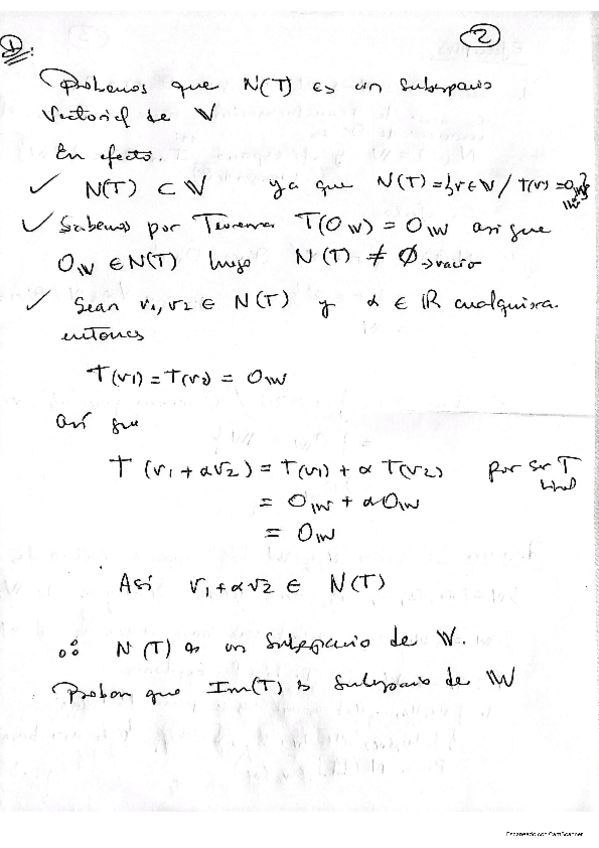 2
D:
Probemos que N(T) es un subespacio
vectorial de V
En efecto.
✓ N(T) ⊂ V ya que N(T) = {v ∈ V / T(v) = 0_W}
✓ Sabemos por Teorema T(0_V) = 0_W asi que
0_V ∈ N(T) luego N(T) ≠ ∅ → vacio
✓ Sean v1, v2 ∈ N(T) y α ∈ ℝ cualquiera.
entonces
T(v1) = T(v2) = 0_W
así que
T(v1 + αv2) = T(v1) + α T(v2) por ser T
lineal
= 0_W + α0_W
= 0_W
Asi v1 + αv2 ∈ N(T)
∴ N(T) es un subespacio de V.
Probar que Im(T) es subespacio de W
Escaneado con CamScanner